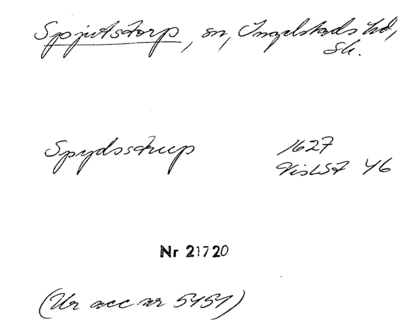 Spjutstorp, sn, Ingelstads hd,
Sk.
Spydsstrup 1627
VisLSt 46
Nr 21720
(Ur acc nr 5151)